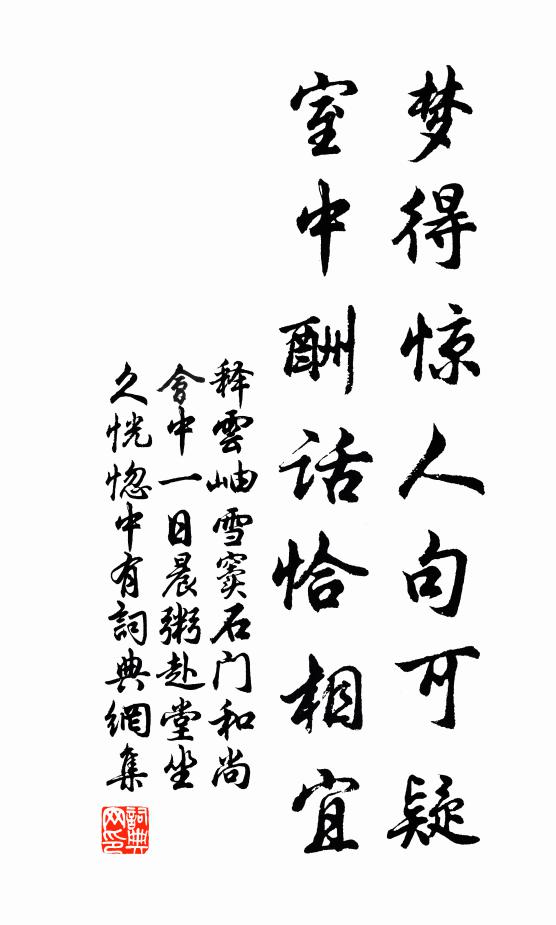 梦得惊人句可疑
室中酬话恰相宜
释雲岫雪窦石门和尚
會中一日晨粥赴堂坐
久恍惚中有詞典網集
詞典网印